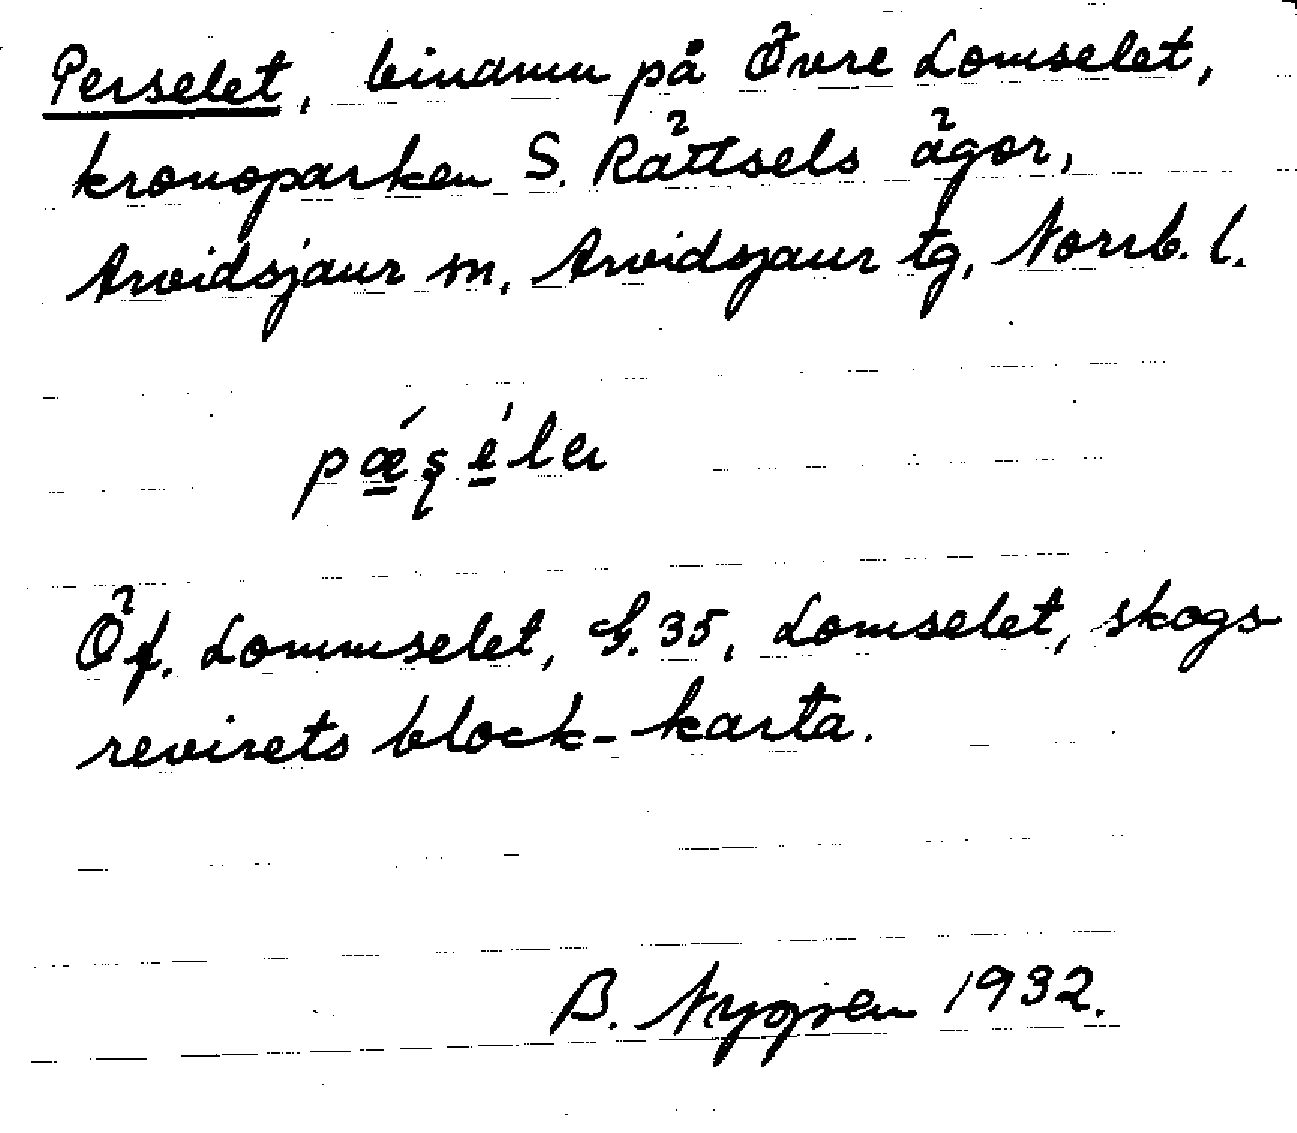 Perselet, binamn på Övre Lomselet,
kronoparken S. Rättsels ägor,
Arvidsjaur sn, Arvidsjaur tg, Norrb. l.
pǽ̱ʂe̱̍lɐ
Öf. Lommselet, G. 35, Lomselet, skogs-
revirets block-karta.
B. Nygren 1932.